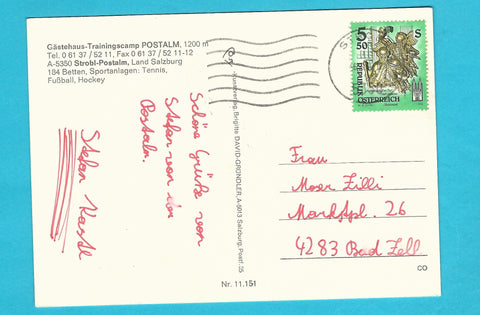 Gästehaus-Trainingscamp POSTALM, 1200 m
Tel. 0 61 37 / 52 11, Fax 0 61 37 / 52 11-12
A-5350 Strobl-Postalm, Land Salzburg
184 Betten, Sportanlagen: Tennis,
Fußball, Hockey
Schöne Grüße von
Stefan von der
Postalm.
Stefan
Kunstverlag Brigitte DAVID-GRÜNDLER, A-5013 Salzburg, Postf. 35
Nr. 11.151
5 50
S
REPUBLIK
ÖSTERREICH
Frau
Moser Zilli
Marktpl. 26
4283 Bad Zell
CO